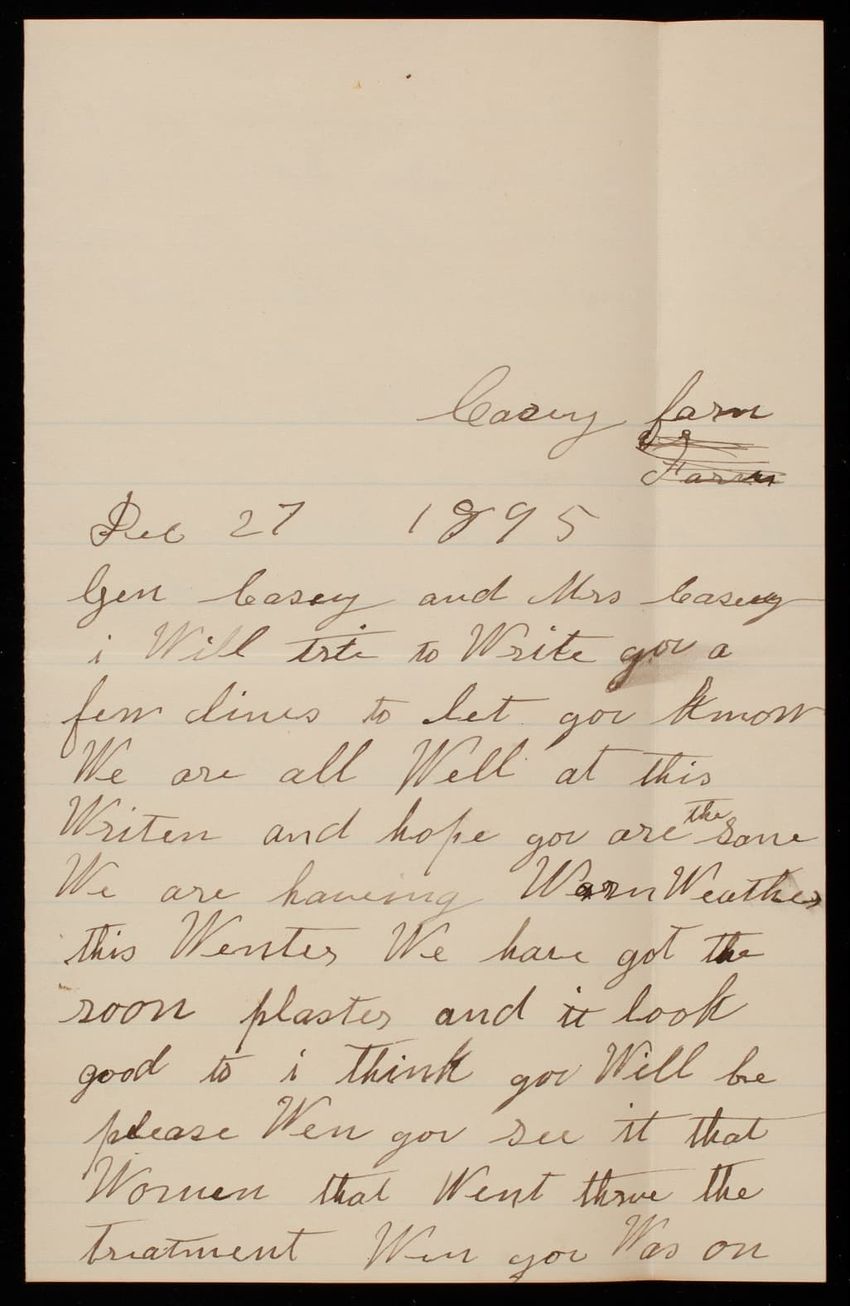 Casey farm
Farm
Dec 27 1895
Gen Casey and Mrs Casey
i Will trie to Write you a
few lines to let you know
We are all Well at this
Writen and hope you are the same
We are haveing Warm Weather
this Wenter We have got the
room plaster and it look
good to i think you Will be
please Wen you see it that
Women that Went thrue the
treatment Wen you Was on